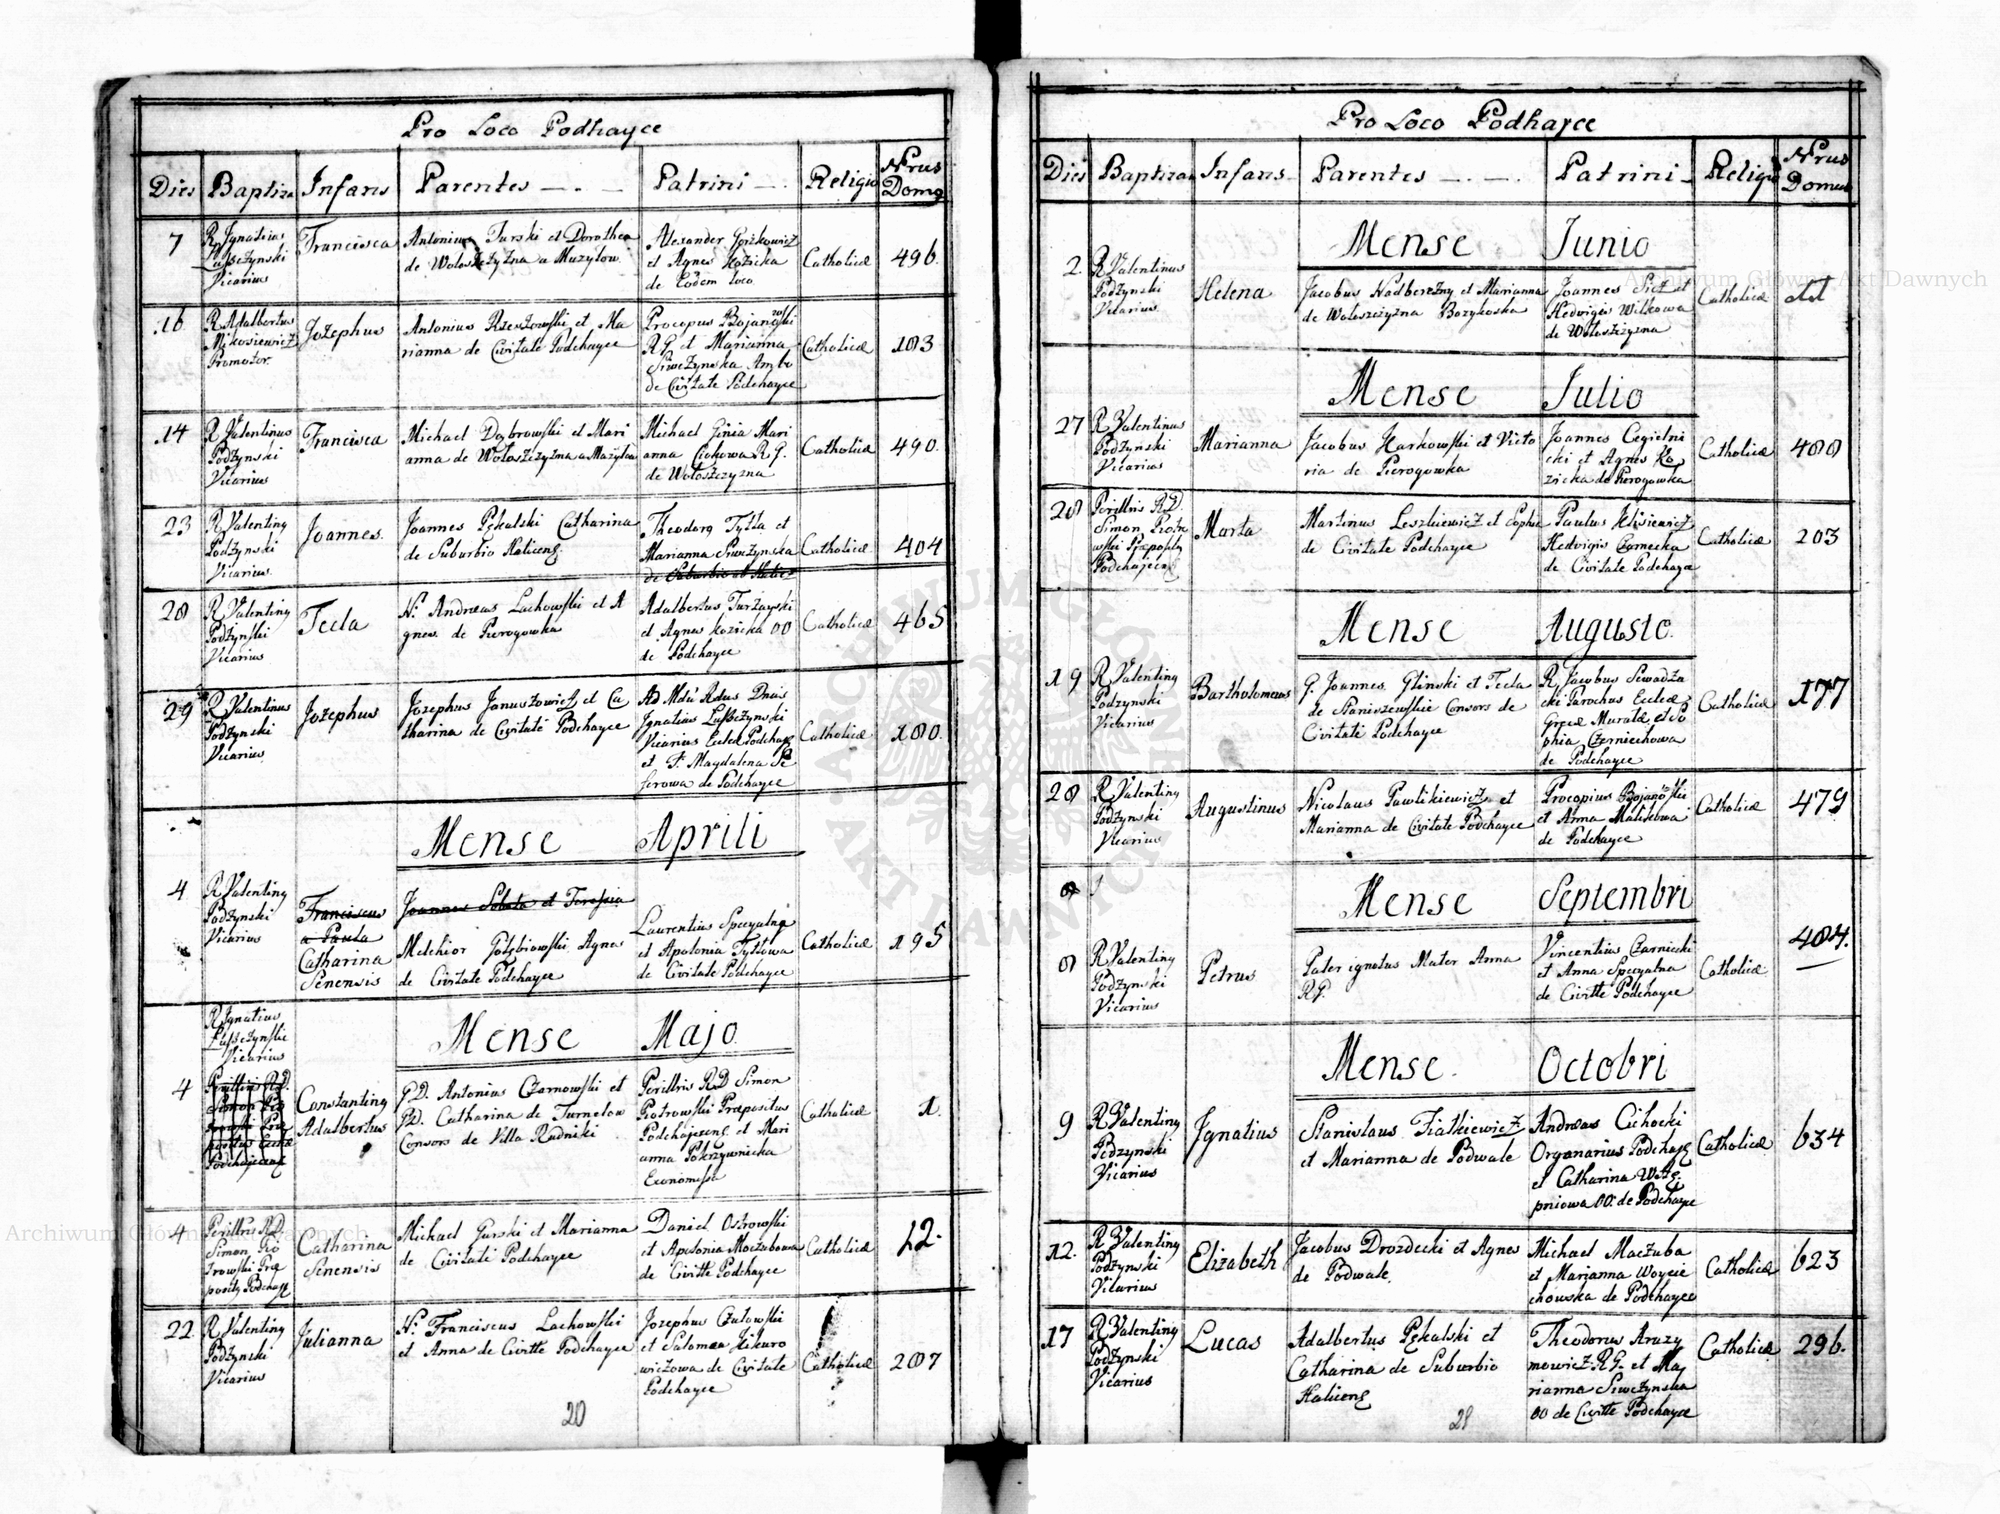 Pro Loco Podhayce
Dies Baptiza Infans Parentes Patrini Religio Nrus Domq
7
R Ignatius
Lusczynski
Vicarius
Francisca
Antonius Turski et Dorothea
de Wołoszczyzna a Muzyłow
Alexander Gorzkowicz
et Agnes Kozicka
de Eodem Loco
Catholicæ
496.
16
R Adalbertus
Mikosiewicz
Promotor
Jozephus
Antonius Rzeszowski et Ma
rianna de Civitate Podchayce
Procopus Bojanowski
R.G. et Marianna
Siweżynska Ambo
de Civitate Podchayce
Catholicæ
183
14
R Valentinus
Podżynski
Vicarius
Francisca
Michael Dąbrowski et Mari
anna de Wołoszczyzna a Mużyłow
Michael Ginia Mari
anna Ciokowa R.G.
de Wołoszczyzna
Catholicæ
490.
23
R Valentinq
Podżynski
Vicarius.
Joannes.
Joannes Pękalski Catharina
de Suburbio Halicens
Theodorq Tytła et
Marianna Siweżynska
de Suburbio et Halice
Catholicæ
404
28
R Valentinq
Podżynski
Vicarius
Tecla
N: Andreas Lachowski et A
gnes de Pierogowka
Adalbertus Turzayski
et Agnes Kozicka OO
de Podchayce
Catholicæ
465
29
R Valentinus
Podżynski
Vicarius
Jozephus
Jozephus Januszowicz et Ca
tharina de Civitate Podchayce
Ad Mdu Rdus Dnus
Ignatius Lusczynski
Vicarius Eccle Podchay
et F. Magdalena Se
ferowa de Podchayce
Catholicæ
180.
Mense Aprili
4
R Valentinq
Podżynski
Vicarius
Franciscus
a Paula
Catharina
Senensis
Joannes Sobota et Teressia
Melchior Gołębiowski Agnes
de Civitate Podchayce
Laurentius Specyalnq
et Apolonia Tytłowa
de Civitate Podchayce
Catholicæ
195
Mense Majo
R Ignatius
Lusczynski
Vicarius
4
Perillris R.D.
Simon Pio
trowski Præ
positus Eccle
Podchajecens
Constantinq
Adalbertus
G.D. Antonius Czarnowski et
G.D. Catharina de Turnelow
Consors de Villa Rudniki
Perillris R.D Simon
Piotrowski Præpositus
Podchajecens et Mari
anna Pokrzywnicka
Economissa
Catholicæ
1.
4
Perillris R.D.
Simon Pio
trowski Præ
positq Podchay
Catharina
Senensis
Michael Gurski et Marianna
de Civitate Podchayce
Daniel Ostrowski
et Apolonia Maczubowa
de Civitte Podchayce
Catholicæ
12.
22
R Valentinq
Podżynski
Vicarius
Julianna
N: Franciscus Lachowski
et Anna de Civitte Podchayce
Jozephus Czułowski
et Salomea Hikuro
wiczowa de Civitate
Podchayce
Catholicæ
287
20
Pro Loco Podhayce
Dies Baptizan Infans Parentes Patrini Religio Nrus Domus
Mense Junio
2
R Valentinus
Podżynski
Vicarius
Helena
Jacobus Nadbereżny et Marianna
de Wołoszczyzna Bożykoska
Joannes Sież et
Hedvigis Witkowa
de Wołoszczyzna
Catholicæ
Mense Julio
27
R Valentinus
Podżynski
Vicarius
Marianna
Jacobus Harkowski et Victo
ria de Pierogowka
Joannes Cegielni
cki et Agnes Ko
zicka de Pierogowka
Catholicæ
488
28
Perillris R.D.
Simon Piotro
wski Præpositq
Podchajecens
Marta
Martinus Leszkiewicz et Sophia
de Civitate Podchayce
Paulus Jelisiewicz
Hedvigis Czarnecka
de Civitate Podchayce
Catholicæ
203
Mense Augusto.
19
R Valentinq
Podzynski
Vicarius
Bartholomeus
G. Joannes Glinski et Tecla
de Staniszewskie Consors de
Civitate Podchayce
R. Jacobus Sewadza
cki Parochus Eccleæ
Grecæ Muratæ, et So
phia Czerniechowa
de Podchayce
Catholicæ
177
28
R Valentinq
Podżynski
Vicarius
Augustinus
Nicolaus Pawlikiewicz et
Marianna de Civitate Podchayce
Procopius Bojanowski
et Anna Malisewa
de Podchayce
Catholicæ
479
Mense Septembri
8
R Valentinq
Podżynski
Vicarius
Petrus
Pater ignotus Mater Anna
R.G.
Vincentius Czarniecki
et Anna Specyalna
de Civitte Podchayce
Catholicæ
484.
Mense Octobri
9
R Valentinq
Podzynski
Vicarius
Ignatius
Stanislaus Fiałkiewicz
et Marianna de Podwale
Andreas Cichocki
Organarius Podchay
et Catharina Watę
pniowa OO. de Podchayce
Catholicæ
634
12.
R Valentinq
Podżynski
Vicarius
Elizabeth
Jacobus Drozdecki et Agnes
de Podwale.
Michael Maczuba
et Marianna Woycie
chowska de Podchayce
Catholicæ
623
17
R Valentinq
Podżynski
Vicarius
Lucas
Adalbertus Pękalski et
Catharina de Suburbio
Halicens
Theodorus Arazy
mowicz R.G. et Ma
rianna Siweżynska
OO de Civitte Podchayce
Catholicæ
296.
21
Archiwum Główne Akt Dawnych